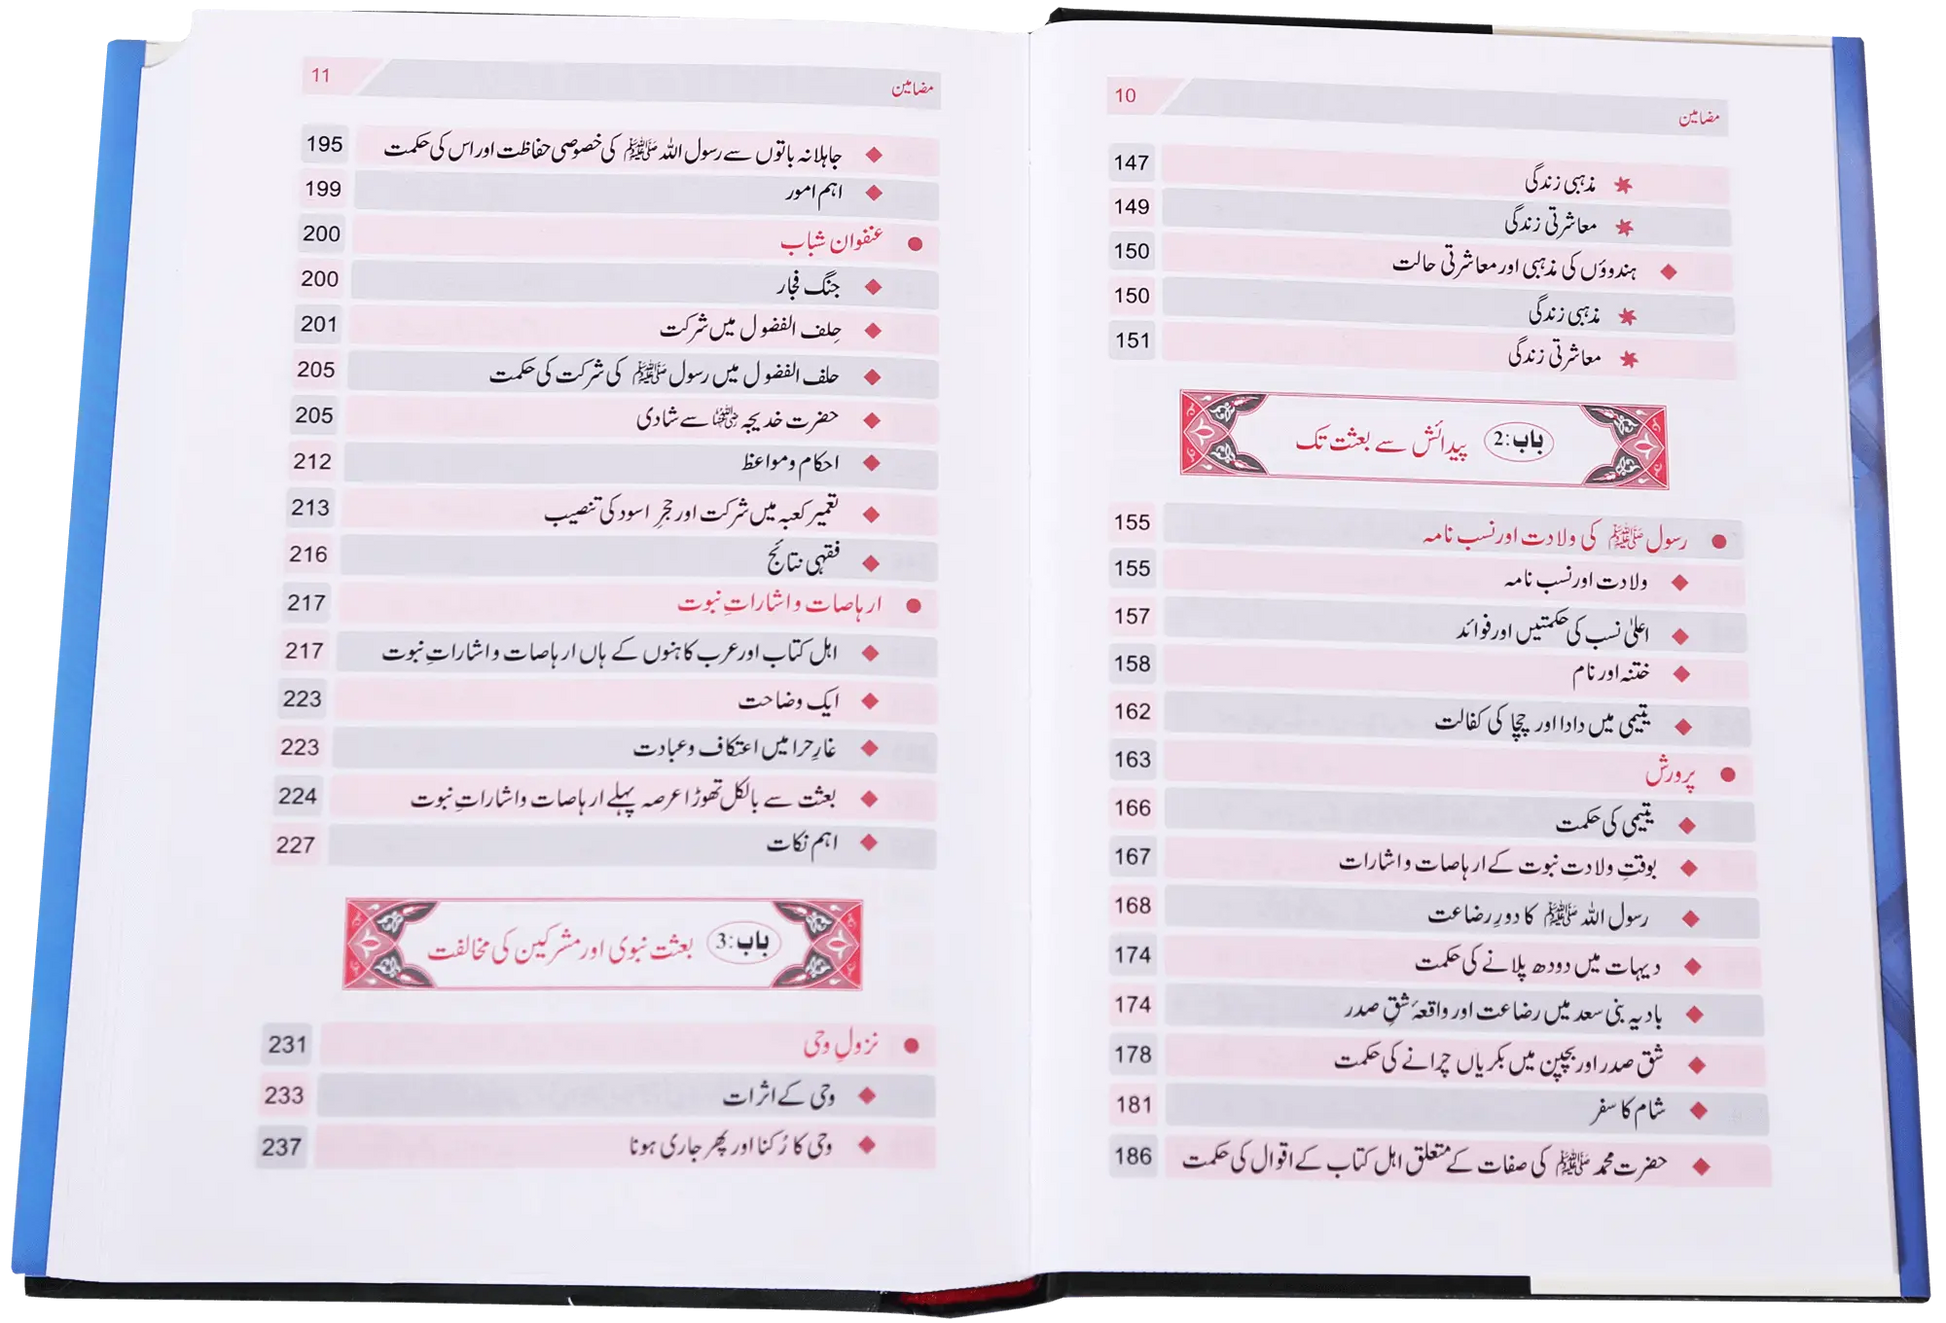 مضامین 10
مذہبی زندگی 147
معاشرتی زندگی 149
ہندوؤں کی مذہبی اور معاشرتی حالت 150
مذہبی زندگی 150
معاشرتی زندگی 151
باب:2 پیدائش سے بعثت تک
رسول ﷺ کی ولادت اور نسب نامہ 155
ولادت اور نسب نامہ 155
اعلیٰ نسب کی حکمتیں اور فوائد 157
ختنہ اور نام 158
یتیمی میں دادا اور چچا کی کفالت 162
پرورش 163
یتیمی کی حکمت 166
بوقتِ ولادت نبوت کے ارہاصات و اشارات 167
رسول اللہ ﷺ کا دورِ رضاعت 168
دیہات میں دودھ پلانے کی حکمت 174
بادیہ بنی سعد میں رضاعت اور واقعۂ شقِ صدر 174
شق صدر اور بچپن میں بکریاں چرانے کی حکمت 178
شام کا سفر 181
حضرت محمد ﷺ کی صفات کے متعلق اہل کتاب کے اقوال کی حکمت 186
مضامین 11
جاہلانہ باتوں سے رسول اللہ ﷺ کی خصوصی حفاظت اور اس کی حکمت 195
اہم امور 199
عنفوان شباب 200
جنگ فجار 200
حِلف الفضول میں شرکت 201
حلف الفضول میں رسول ﷺ کی شرکت کی حکمت 205
حضرت خدیجہ رضی اللہ عنہا سے شادی 205
احکام و مواعظ 212
تعمیر کعبہ میں شرکت اور حجرِ اسود کی تنصیب 213
فقہی نتائج 216
ارہاصات و اشاراتِ نبوت 217
اہل کتاب اور عرب کاہنوں کے ہاں ارہاصات و اشاراتِ نبوت 217
ایک وضاحت 223
غارِ حرا میں اعتکاف و عبادت 223
بعثت سے بالکل تھوڑا عرصہ پہلے ارہاصات و اشاراتِ نبوت 224
اہم نکات 227
باب:3 بعثت نبوی اور مشرکین کی مخالفت
نزولِ وحی 231
وحی کے اثرات 233
وحی کا رُکنا اور پھر جاری ہونا 237